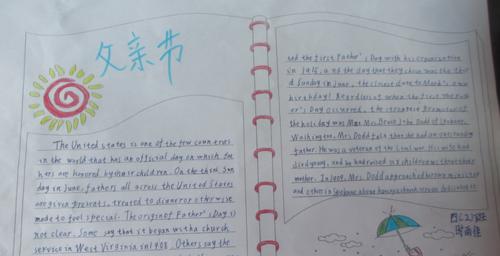 父亲节
The United states is one of the few countries
in the world that has an official day on which fat
hers are honored by their children. On the third Sun
day in June, fathers all across the United States
are given presents, treated to dinner or otherwise
made to feel special. The origin of Father's Day is
not clear. Some say that it began with a church
service in West Virginia in 1908. Others say the
the first Father's Day with his organization
in 1915, and the day that they chose was the third
Sunday in June, the closest date to
birthday! Regardless of when the first
Day occurred, the strongest promoter of
the holiday was Mrs. Dodd of Spokane,
Washington. Mrs. Dodd felt that she had an outstanding
father. He was a veteran of the Civil War. His wife had
died young, and he had raised six children without their
mother. In 1909, Mrs. Dodd approached her own minister
and others in Spokane about